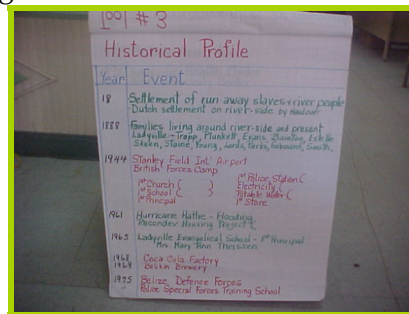 Tool #3
Historical Profile
Year Event
18 Settlement of run away slaves & river people
- Dutch settlement on river-side by
1888 Families living around river-side and present
Ladyville - Trapp, Plunkett, Evans, Estelle
Staine, Young, Perks, Smith,
1944 Stanley Field Int' Airport
British Forces Camp
1st Church ( )
1st School ( )
1st Principal
1st Police Station (
Electricity (
Potable Water (
1st Store
1961 Hurricane Hattie - Flooding
Housing Project (
1965 Ladyville Evangelical School - 1st Principal
Mrs. Mary Ann
1968 Coca Cola Factory
1969 Belikin Brewery
1975 Belize Defence Forces
Police Special Forces Training School